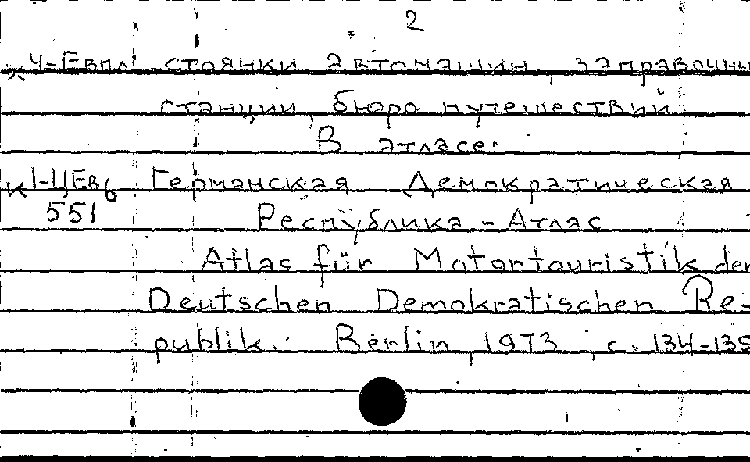 2
стоянки автомашин, заправочны
станции, бюро путешествий.
В атласе:
К 1-ЦЕв6 Германская Демократическая
551 Республика - Атлас
Atlas für Motortouristik der
Deutschen Demokratischen Re-
publik. Berlin, 1973, с. 134-135